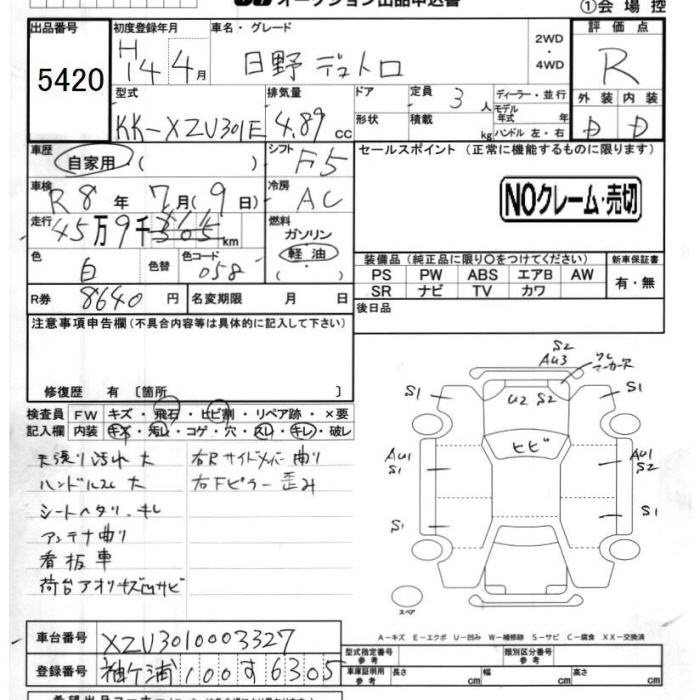 オークション出品申込書
①会場控
出品番号 初度登録年月 車名・グレード 評価点
5420 H14 4月 日野デュトロ 2WD・4WD R
型式 排気量 ドア 定員 3人 ディーラー・並行 外装 内装
KK-XZU301E 4.89cc 形状 積載 kg モデル年式 年 ハンドル 左・右 D D
車歴 自家用 ( ) シフト F5 セールスポイント (正常に機能するものに限ります)
車検 R8年7月(9日) 冷房 AC NOクレーム・売切
走行 45万9千305km 燃料 ガソリン 軽油
色 白 色替 色コード 058
装備品 (純正品に限り○をつけてください) 新車保証書
PS PW ABS エアB AW 有・無
SR ナビ TV カワ
R券 8640円 名変期限 月 日 後日品
注意事項申告欄(不具合内容等は具体的に記入して下さい)
修復歴 有 〔箇所 〕
検査員 FW キズ・飛石・ヒビ割・リペア跡・×要
記入欄 内装 キズ・汚れ・コゲ・穴・スレ・キレ・破レ
天張り汚れ大 右Rサイドメンバー曲り
ハンドルスレ大 右Fピラー歪み
シートヘタリ・キレ
アンテナ曲り
看板車
荷台アオリキズ凹サビ
S2
AU3
S1 U2 S2 S1
ヒビ
AU1 AU1
S1 S2
S1 S1
スペア
A-キズ E-エクボ U-凹み W-補修跡 S-サビ C-腐食 XX-交換済
車台番号 XZU3010003327 型式指定番号 参考 類別区分番号 参考
登録番号 袖ケ浦100す6305 車庫証明用 参考 長さ cm 幅 cm 高さ cm